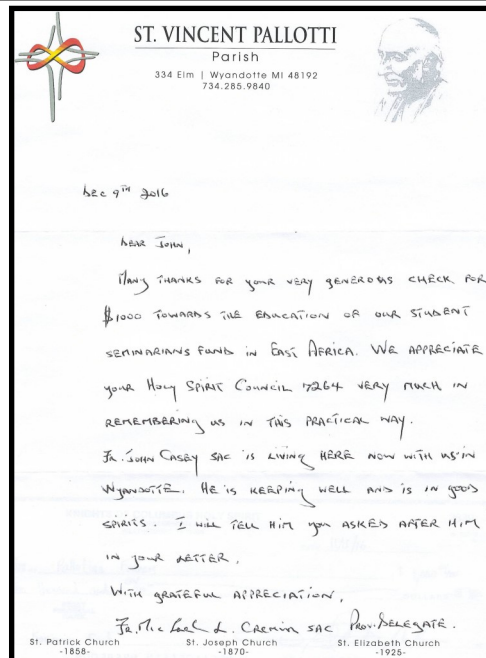 ST. VINCENT PALLOTTI
Parish
334 Elm | Wyandotte MI 48192
734.285.9840
DEC 9TH 2016
DEAR JOHN,
MANY THANKS FOR YOUR VERY GENEROUS CHECK FOR
$1000 TOWARDS THE EDUCATION OF OUR STUDENT
SEMINARIANS FUND IN EAST AFRICA. WE APPRECIATE
YOUR HOLY SPIRIT COUNCIL 7264 VERY MUCH IN
REMEMBERING US IN THIS PRACTICAL WAY.
FR. JOHN CASEY SAC IS LIVING HERE NOW WITH US IN
WYANDOTTE. HE IS KEEPING WELL AND IS IN GOOD
SPIRITS. I WILL TELL HIM YOU ASKED AFTER HIM
IN YOUR LETTER.
WITH GRATEFUL APPRECIATION,
Fr. Michael L. CREMIN SAC PROV. DELEGATE.
St. Patrick Church St. Joseph Church St. Elizabeth Church
-1858- -1870- -1925-